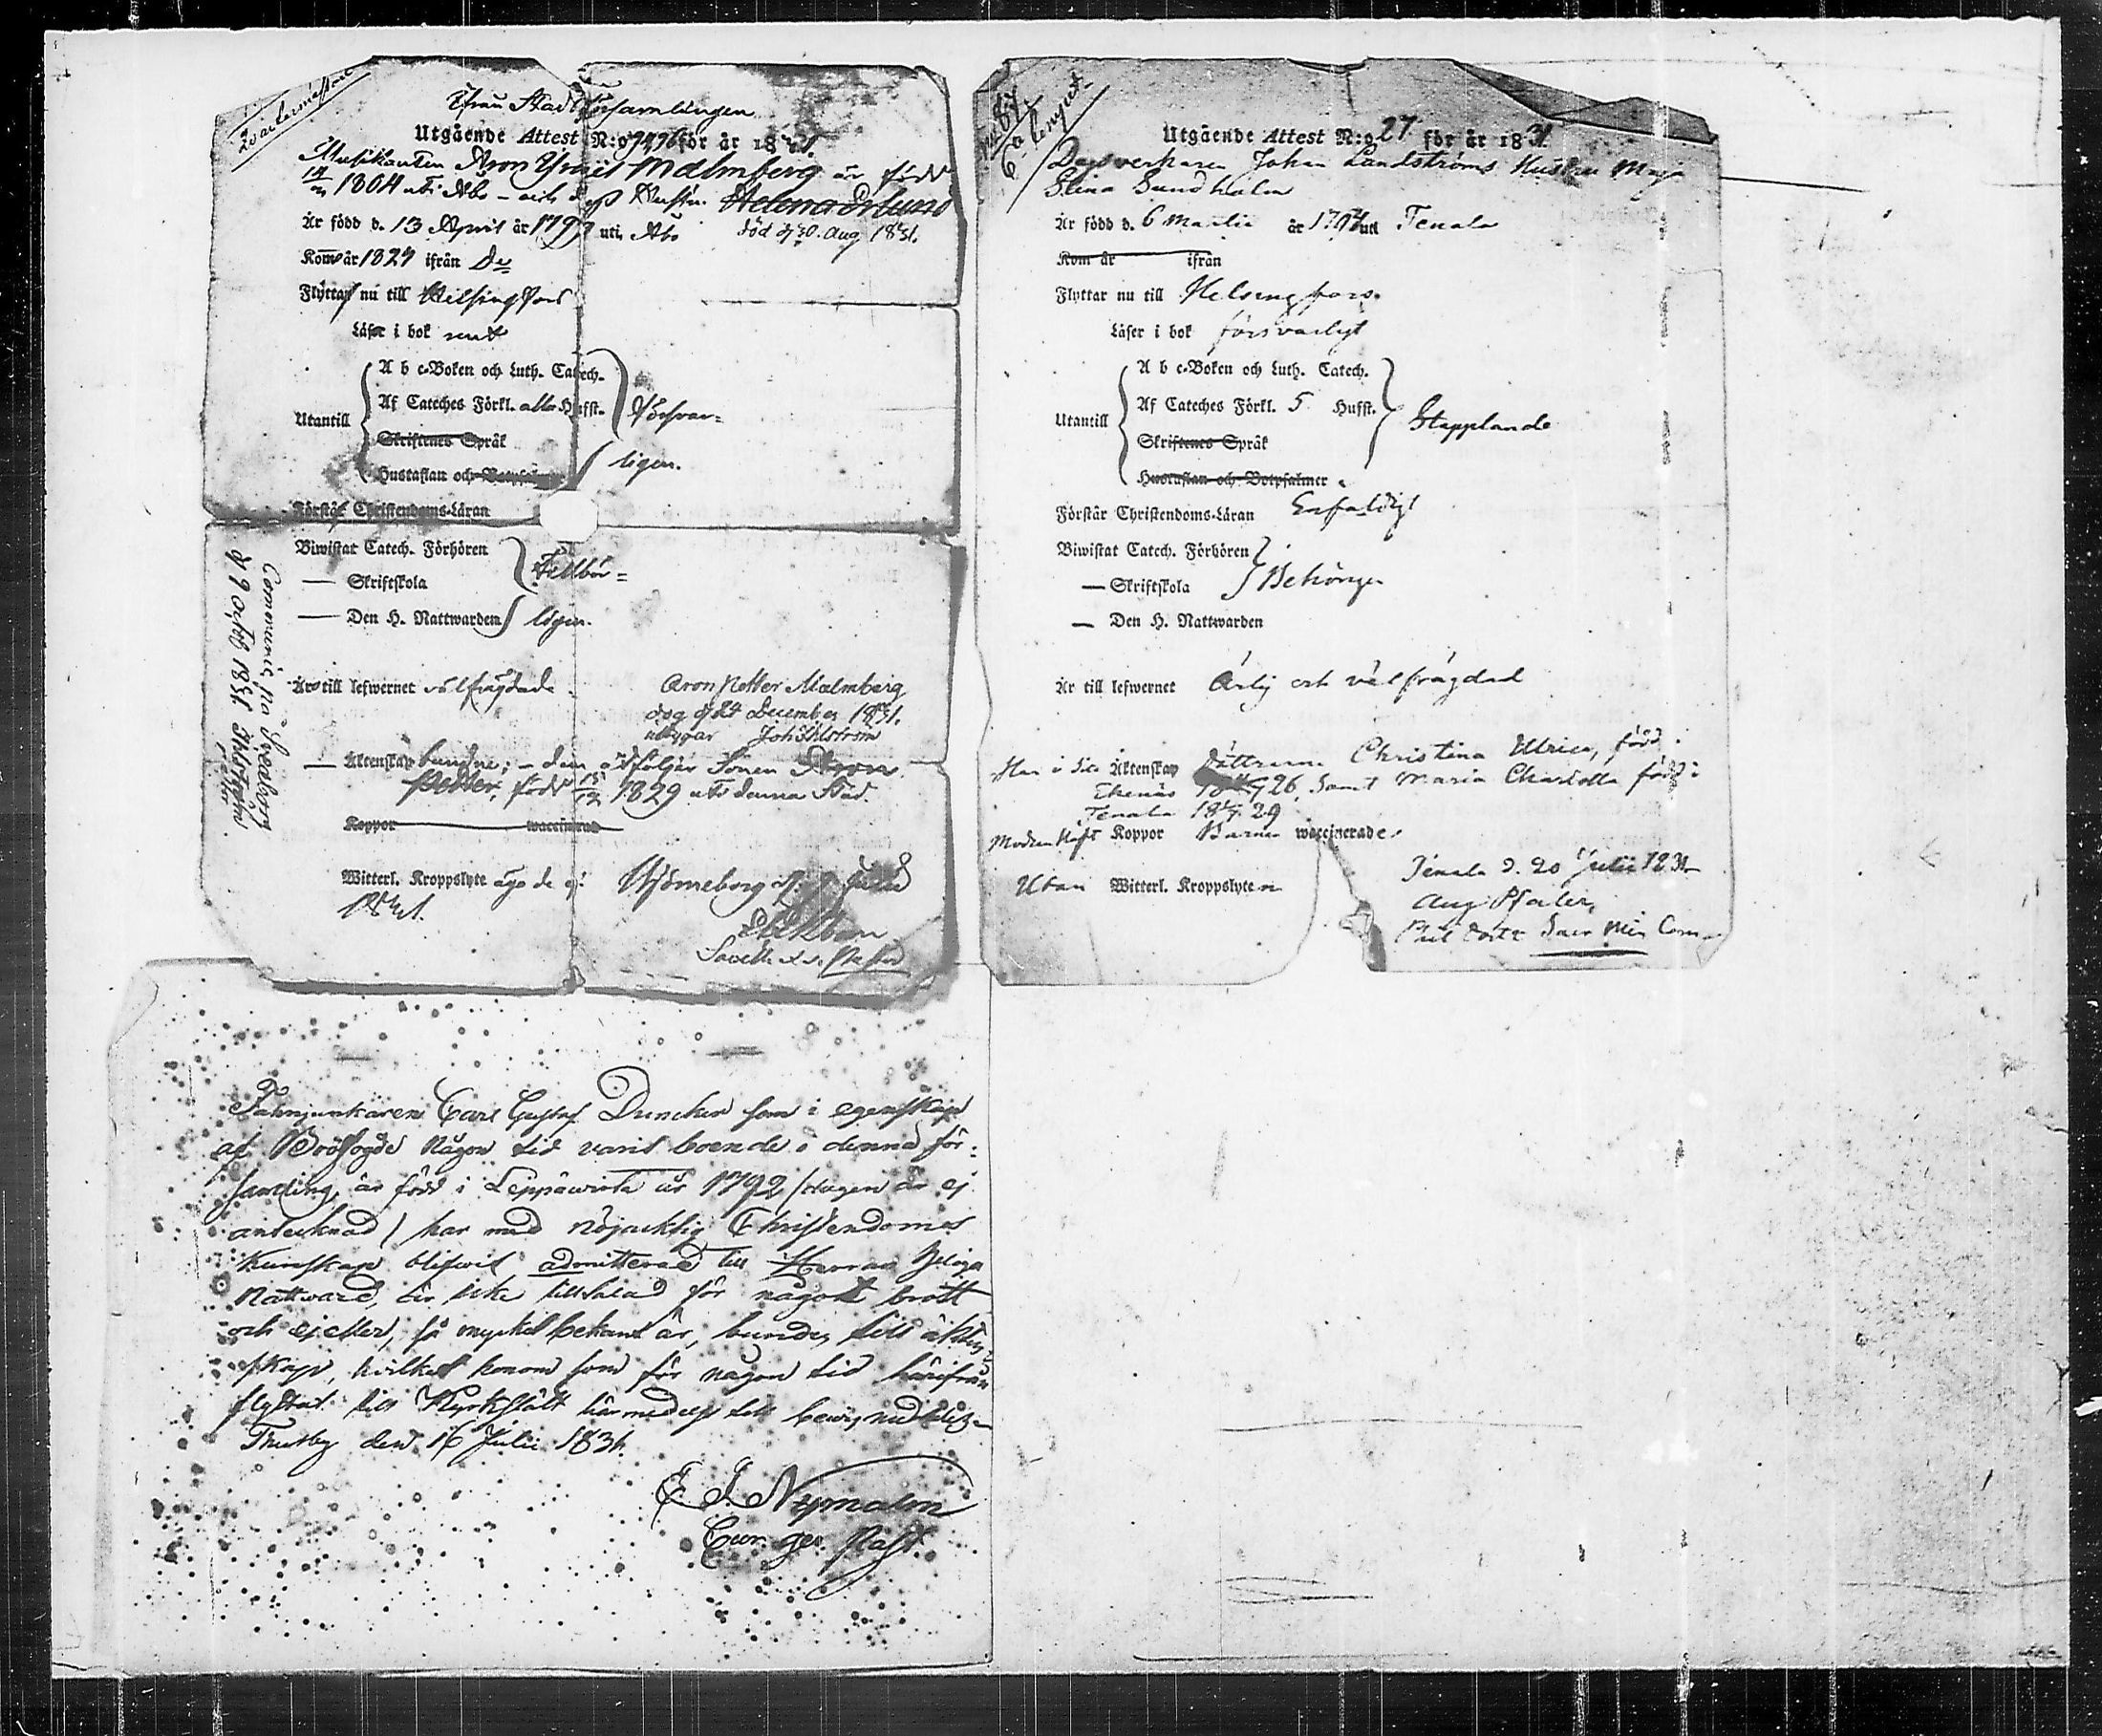 2 var ler
Ifrån Stads församlingen
Utgående Attest N:o för år 1831.
Musikanten Aron Malmberg är född
1804 uti Åbo – och dess Hustru Helena
Är född d. 13 April år 179 uti Åbo död d. 30. Aug 1831.
Kom år 1827 ifrån D:o
Flyttar nu till Helsingfors
Läser i bok rent
A b c-Boken och Luth. Catech.
Af Cateches Förkl. alla Hufst.
Utantill
försvar=
Skriftenes Språk
Hustaflan och Botpsalmer
ligen.
Förstår Christendoms-Läran
Biwistat Catech. Förhören
— Skriftskola
Tillbör=
— Den H. Nattwarden
ligen.
Är till lefwernet välfrägdade.
Aron Petter Malmberg
dog d 24 December 1831.
intygar
— Äktenskap bundne; – dem åtföljer Sonen Aron
Petter, född 15/12 1829 uti denna Stad.
Koppor waccinerad
Witterl. Kroppslyte äga de ej. Björneborg d. 9 Julii
1831.
Communic. på Sveaborg
d 9 Octob 1831
Utgående Attest N:o 27 för år 1831.
Dagsverkaren Johan Landströms Hustru Maja
Stina Sundholm
Är född d. 6 Martii år 1794 uti Tenala
Kom år ifrån
Flyttar nu till Helsingfors.
Läser i bok försvarligt
A b c-Boken och Luth. Catech.
Af Cateches Förkl. 5 Hufst.
Utantill
Stapplande
Skriftenes Språk
Hustaflan och Botpsalmer
Förstår Christendoms-Läran Enfaldigt
Biwistat Catech. Förhören
— Skriftskola
Behörigen
— Den H. Nattwarden
Är till lefwernet Ärlig och välfrägdad
Har i sitt Äktenskap döttrarne Christina Ulrica, född i
Ekenäs 26, samt Maria Charlotta född i
Tenala 29
Modren haft Koppor Barnen waccinerade.
Utan Witterl. Kroppslyten
Tenala d. 20 Julii 1831
Aug Pfaler,
Fahnjunkaren Carl Gustaf Duncker som i egenskap
af Brofogde någon tid varit boende i denna för=
samling, är född i Leppävirta år 1792 /dagen är ej
antecknad/ har med nöjacktig Christendoms
kunskap blifvit admitterad till Herrans Heliga
Nattward, är icke tilltalad för någott brott
och ej eller, så mycket bekant är, bunden till äkten=
skap, hvilket honom som för någon tid härifrån
flyttat till Kyrkslätt härmedelst till bevis meddelas.
Thusby den 16 Julii 1831.
E. J. Nymalm
Cur. ger. Past.